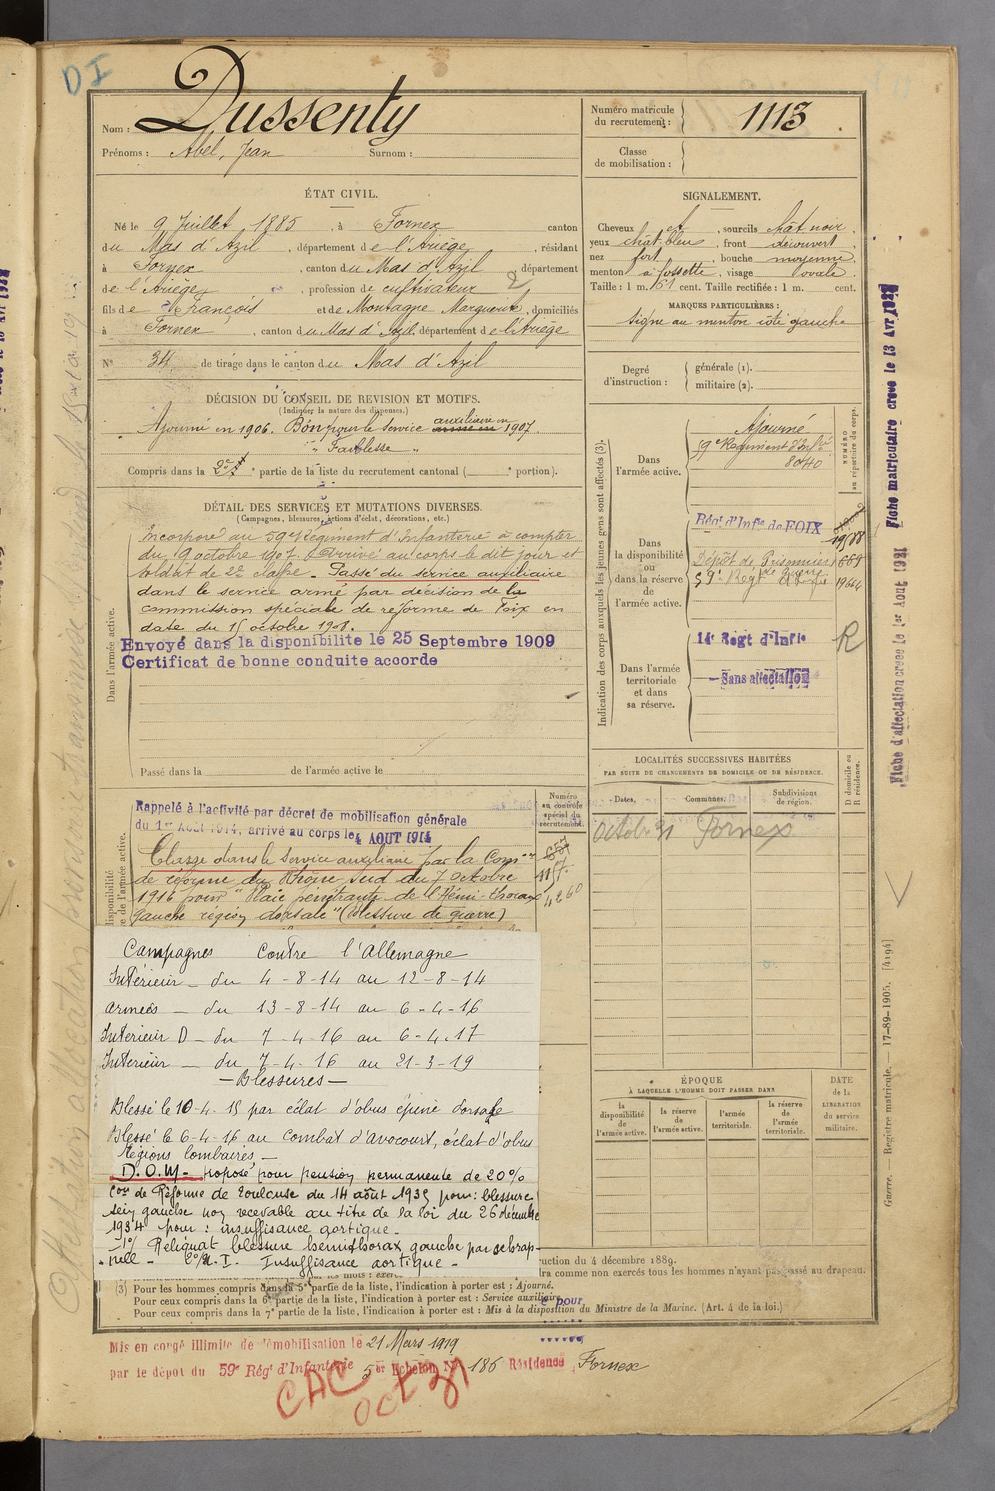 DI
Nom : Dussenty
Prénoms : Abel, Jean Surnom :
Numéro matricule du recrutement : 1113
Classe de mobilisation :
ÉTAT CIVIL.
Né le 9 Juillet 1885, à Fornex canton
du Mas d'Azil, département de l'Ariège, résidant
à Fornex, canton du Mas d'Azil département
de l'Ariège, profession de cultivateur
fils de François et de Montagne Marguerite, domiciliés
à Fornex, canton du Mas d'Azil département de l'Ariège
N° 34 de tirage dans le canton du Mas d'Azil
SIGNALEMENT.
Cheveux et, sourcils chât noir,
yeux chât-bleu, front découvert,
nez fort, bouche moyenne,
menton à fossette, visage ovale.
Taille : 1 m. 61 cent. Taille rectifiée : 1 m. cent.
MARQUES PARTICULIÈRES :
Signe au menton côté gauche
Degré d'instruction : générale (1).
militaire (2).
DÉCISION DU CONSEIL DE REVISION ET MOTIFS.
(Indiquer la nature des dispenses.)
Ajourné en 1906. Bon pour le service auxiliaire en 1907.
" Faiblesse "
Compris dans la 2e partie de la liste du recrutement cantonal ( portion).
DÉTAIL DES SERVICES ET MUTATIONS DIVERSES.
(Campagnes, blessures, actions d'éclat, décorations, etc.)
Dans l'armée active.
Incorporé au 59e Régiment d'Infanterie à compter
du 9 octobre 1907. Arrivé au corps le dit jour et
soldat de 2e classe. Passé du service auxiliaire
dans le service armé par décision de la
commission spéciale de réforme de Foix en
date du 15 octobre 1908.
Envoyé dans la disponibilite le 25 Septembre 1909
Certificat de bonne conduite accorde
Passé dans la de l'armée active le
Indication des corps auxquels les jeunes gens sont affectés (3).
NUMÉRO au répertoire du corps.
Dans l'armée active.
Ajourné
59e Régiment d'Infie
Dans la disponibilité ou dans la réserve de l'armée active.
Régt d'Infie de FOIX
Dépôt de Prisonniers de Guerre
59e Regt d'Infie
Dans l'armée territoriale et dans sa réserve.
14e Regt d'Infie
Sans affectation
R
Fiche matriculaire creee le 13 Avr 1927
Fiche d'affectation creee le 1er Aout 1921
LOCALITÉS SUCCESSIVES HABITÉES
PAR SUITE DE CHANGEMENTS DE DOMICILE OU DE RÉSIDENCE.
D domicile ou R résidence.
Dates. Communes. Subdivisions de région.
Octob 31 Fornex
Numéro au contrôle spécial du recrutement.
Rappelé à l'activité par décret de mobilisation générale
du 1er Août 1914, arrivé au corps le 4 AOUT 1914
Classé dans le service auxiliaire par la Comon
de réforme du Rhône Sud du 7 octobre
1916 pour "Plaie pénétrante de l'Hémi-thorax
gauche région dorsale" (blessure de guerre)
Campagnes contre l'Allemagne
Intérieur - du 4-8-14 au 12-8-14
Armées - du 13-8-14 au 6-4-16
Intérieur D - du 7-4-16 au 6-4-17
Intérieur - du 7-4-16 au 21-3-19
- Blessures -
Blessé le 10-4-15 par éclat d'obus épine dorsale
Blessé le 6-4-16 au combat d'Avocourt, éclat d'obus
Régions lombaires -
D.O.M. - proposé pour pension permanente de 20%
Con de Réforme de Toulouse du 14 août 1935 pour : blessure
sein gauche non recevable au titre de la loi du 26 décembre
1934 pour : insuffisance aortique -
1°/ Reliquat blessure hemithorax gauche par schrap-
-nell - 2°/ Insuffisance aortique -
ÉPOQUE
À LAQUELLE L'HOMME DOIT PASSER DANS
la disponibilité de l'armée active.
la réserve de l'armée active.
l'armée territoriale.
la réserve de l'armée territoriale.
DATE de la LIBÉRATION du service militaire.
Guerre. — Registre matricule. — 17-89-1905. [4194]
ruction du 4 décembre 1889.
dra comme non exercés tous les hommes n'ayant pas passé au drapeau.
(3) Pour les hommes compris dans la 5e partie de la liste, l'indication à porter est : Ajourné.
Pour ceux compris dans la 6e partie de la liste, l'indication à porter est : Service auxiliaire.
Pour ceux compris dans la 7e partie de la liste, l'indication à porter est : Mis à la disposition du Ministre de la Marine. (Art. 4 de la loi.)
Mis en congé illimité de démobilisation le 21 Mars 1919
par le dépot du 59e Régt d'Infanterie 5er Echelon N° 186 Résidence Fornex
CAC
Oct 31